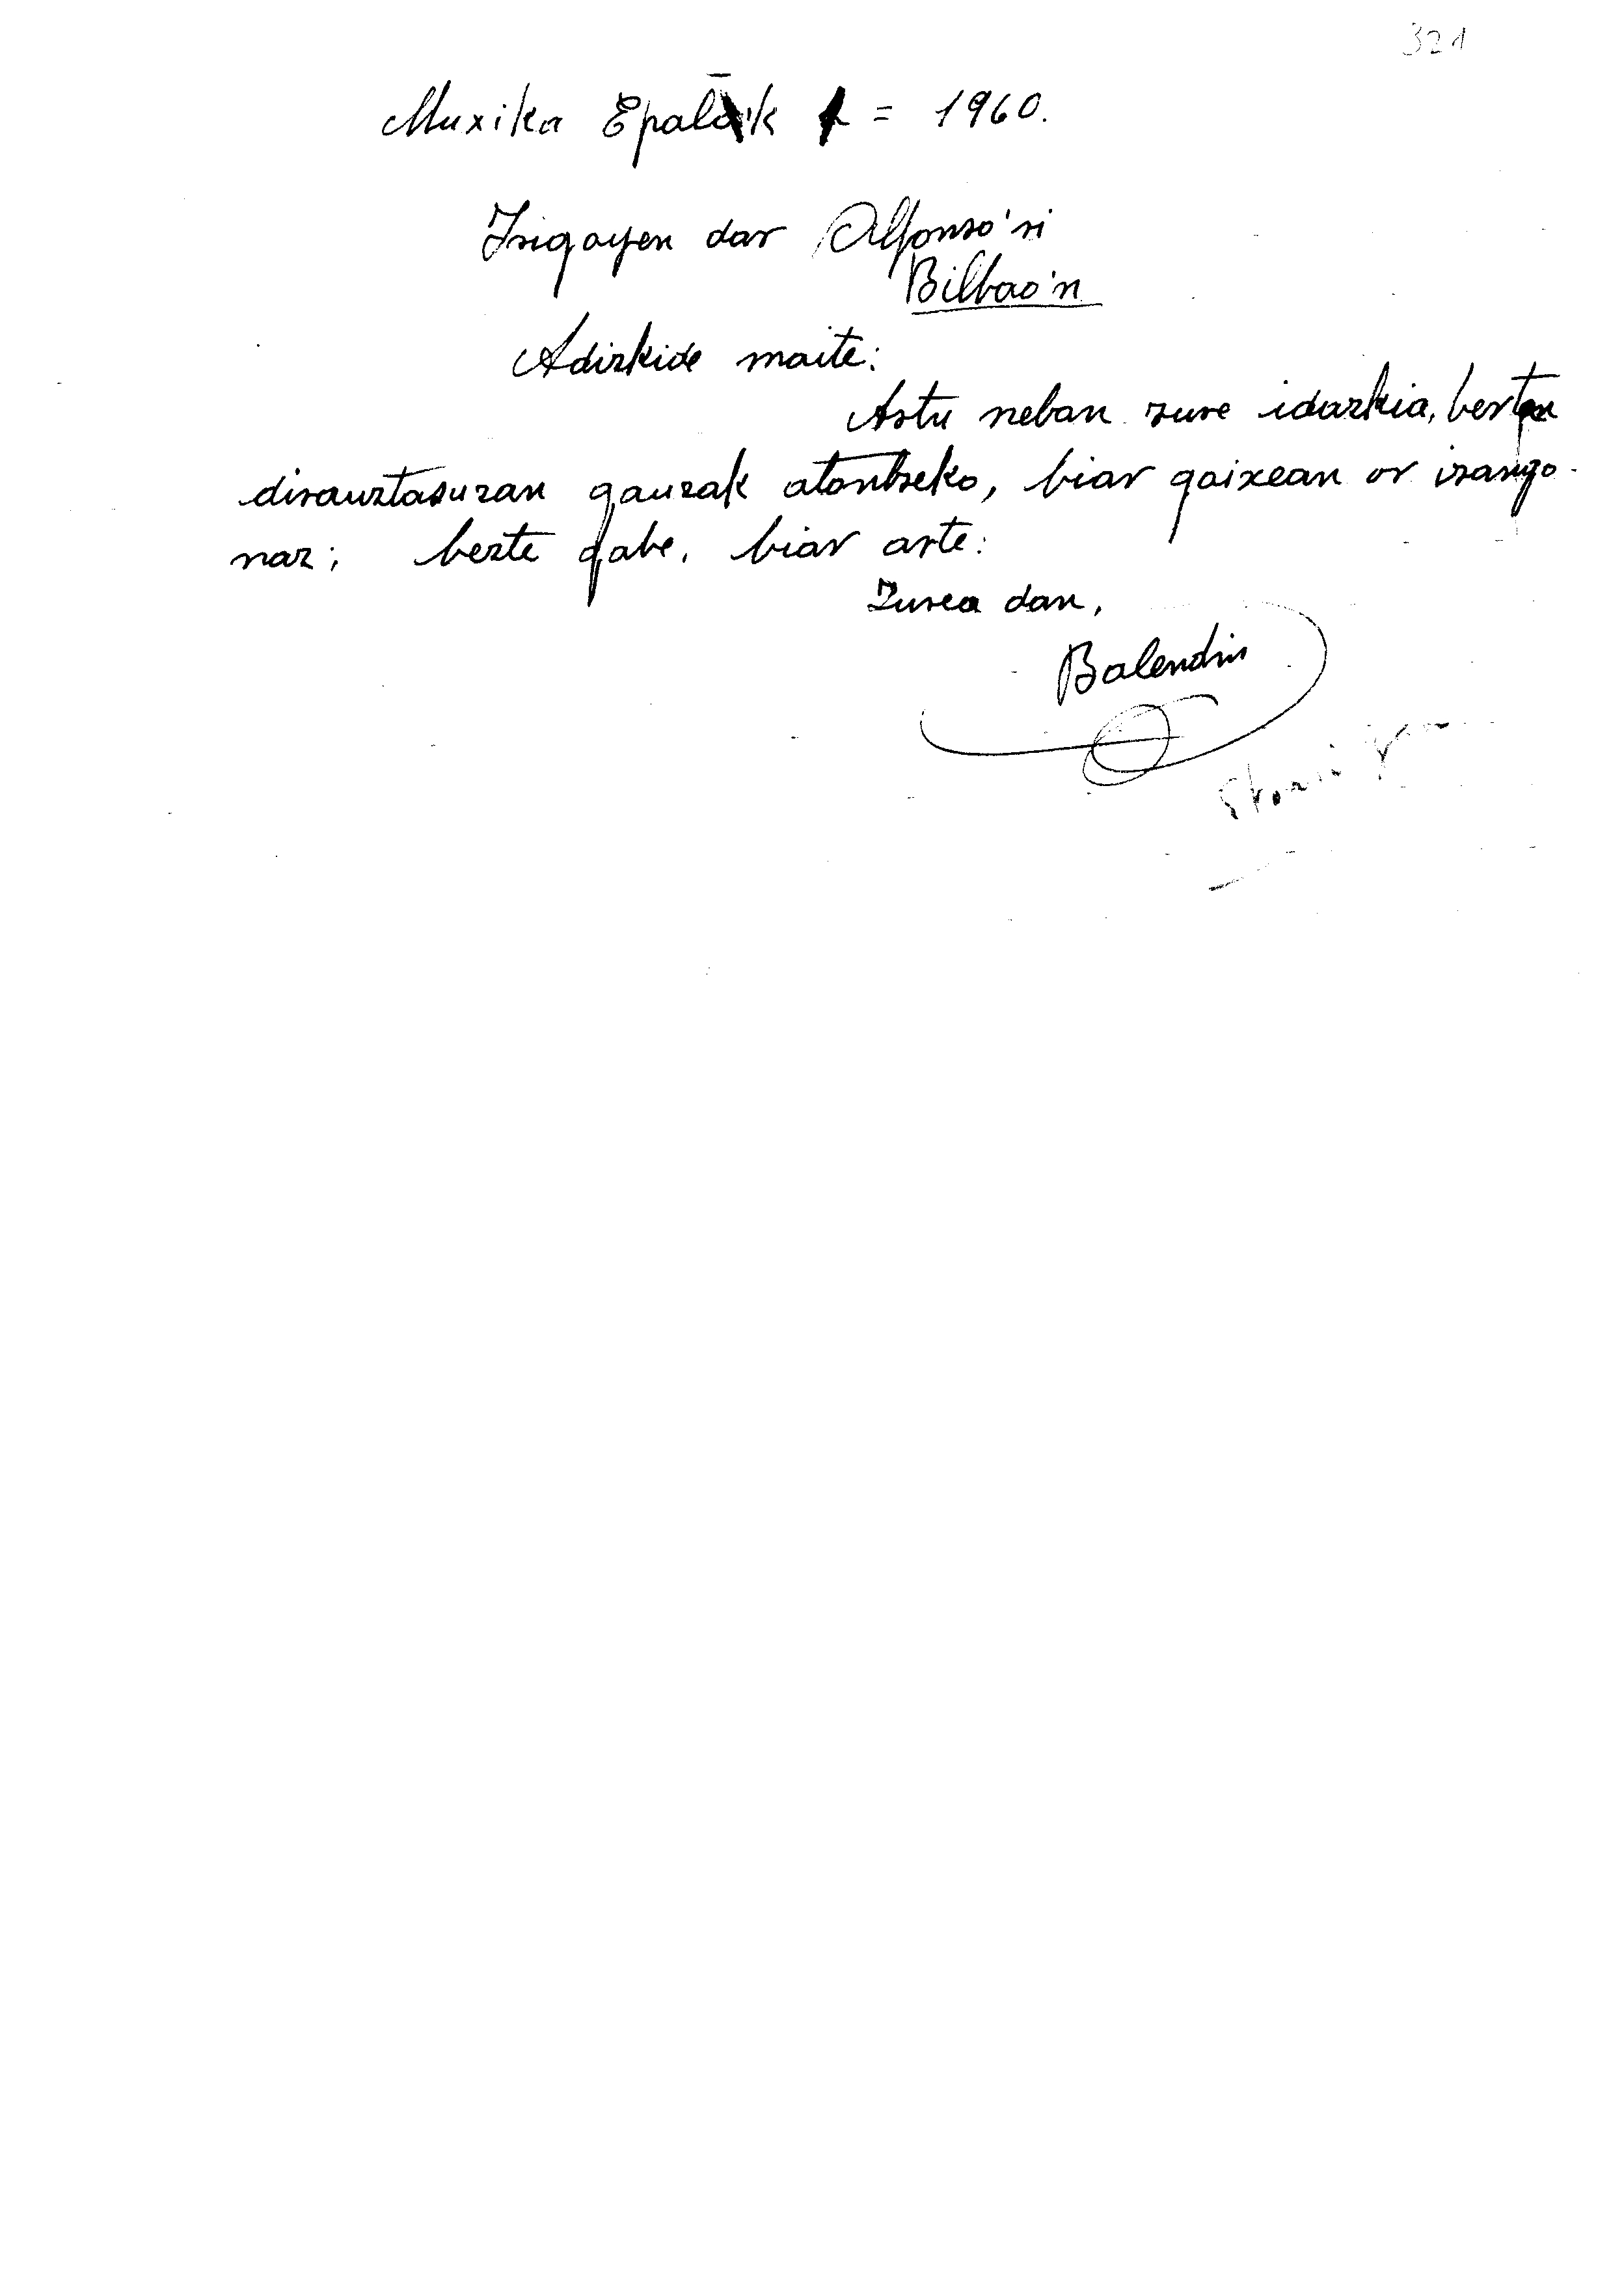 321
Muxika Epalak 1 = 1960.
Irigoyen dar Alfonso'ri
Bilbao'n
Adizkide maite:
Artu neban zure idazkia, bertan
dirauztasuzan gauzak atontzeko, biar goixean or izango
naz; bezte gabe, biar arte:
Zurea dan,
Balendin